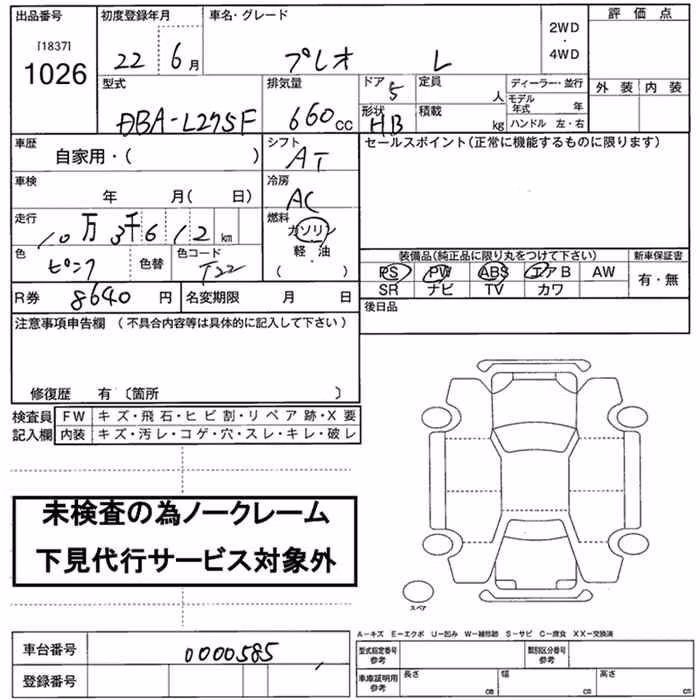 出品番号 初度登録年月 車名・グレード 2WD・4WD 評価点
[1837] 1026 22 6月 プレオ L
外装 内装
型式 排気量 ドア 5 定員 人 ディーラー・並行
DBA-L275F 660cc 形状 HB 積載 kg モデル年式 年
ハンドル 左・右
車歴 シフト セールスポイント(正常に機能するものに限ります)
自家用・( ) AT
車検 冷房
年 月( 日) AC
走行 燃料
10万3千612km ガソリン
軽・油
色 色替 色コード ( )
ピンク T22
装備品(純正品に限り丸をつけて下さい) 新車保証書
PS PW ABS エアB AW 有・無
SR ナビ TV カワ
R券 8640円 名変期限 月 日 後日品
注意事項申告欄 (不具合内容等は具体的に記入して下さい)
修復歴 有 〔箇所 〕
検査員 FW キズ・飛石・ヒビ割・リペア跡・X要
記入欄 内装 キズ・汚レ・コゲ・穴・スレ・キレ・破レ
未検査の為ノークレーム
下見代行サービス対象外
スペア
A-キズ E-エクボ U-凹み W-補修跡 S-サビ C-腐食 XX-交換済
車台番号 0000585
型式指定番号 参考 類別区分番号 参考
登録番号
車庫証明用 参考 長さ cm 幅 cm 高さ cm